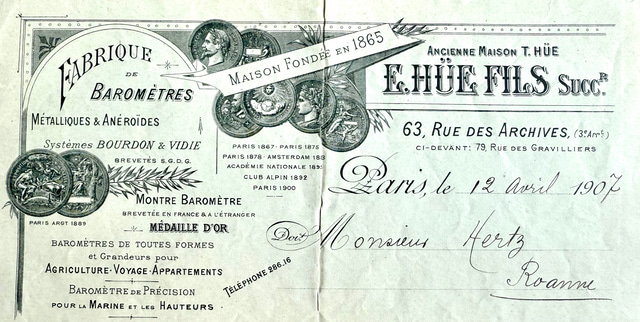 FABRIQUE
DE
BAROMÈTRES
MÉTALLIQUES & ANÉROÏDES
Systèmes BOURDON & VIDIE
BREVETÉS S.G.D.G.
MAISON FONDÉE EN 1865
PARIS 1867 · PARIS 1875
PARIS 1878 · AMSTERDAM 188
ACADÉMIE NATIONALE 189
CLUB ALPIN 1892
PARIS 1900
PARIS ARGT 1889
MONTRE BAROMÈTRE
BREVETÉE EN FRANCE & A L'ÉTRANGER
MÉDAILLE D'OR
BAROMÈTRES DE TOUTES FORMES
et Grandeurs pour
AGRICULTURE · VOYAGE · APPARTEMENTS
BAROMÈTRE DE PRÉCISION
POUR LA MARINE ET LES HAUTEURS
TÉLÉPHONE 286.16
ANCIENNE MAISON T. HÜE
E. HÜE FILS SUCCR.
63, RUE DES ARCHIVES, (3e Arrt)
CI-DEVANT: 79, RUE DES GRAVILLIERS
Paris, le 12 Avril 1907
Doit Monsieur Hertz
Roanne